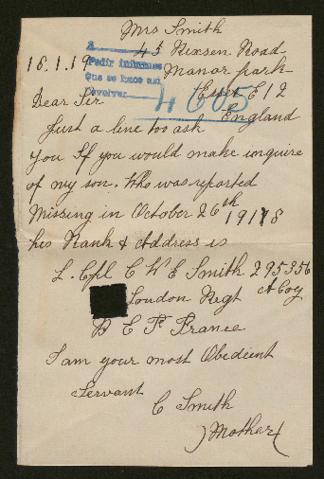 Mrs Smith
43 Nixsen Road
16.1.19 Manor park
A
Pedir informes
Que se busca en
Devolver
4605
Essex E 12
England
Dear Sir
Just a line too ask
you If you would make inquire
of my son. Who was reported
Missing in October 26th 1918
his Rank & Address is
L. Cpl C W E Smith 295356
London Regt A Coy
B E F France
I am your most Obedient
Servant
C Smith
(Mother)